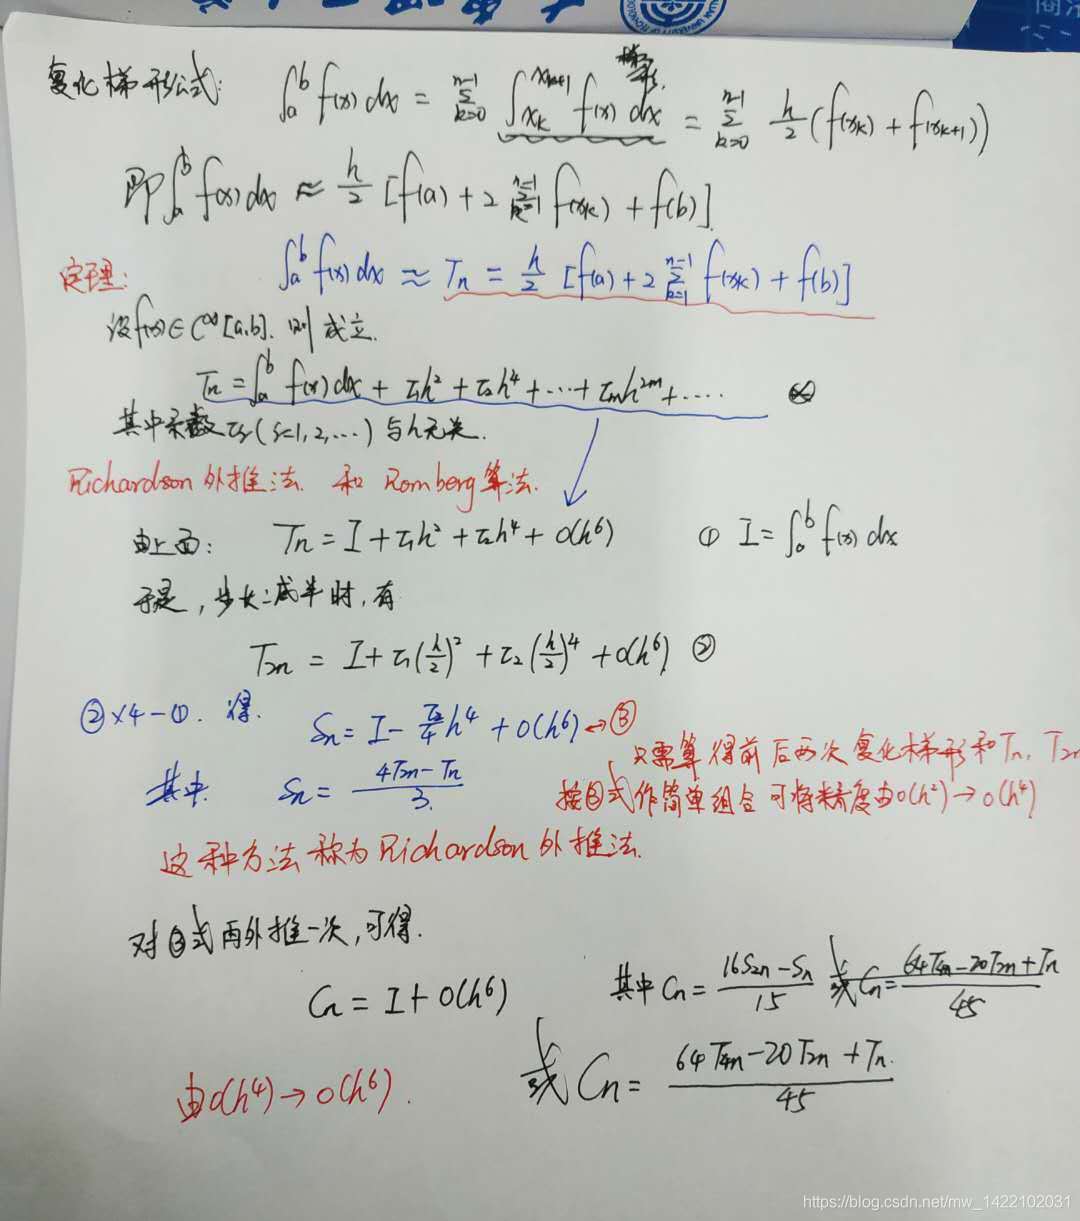 复化梯形公式: ∫_a^b f(x) dx = Σ_{k=0}^{n-1} ∫_{x_k}^{x_{k+1}} f(x) dx = Σ_{k=0}^{n-1} h/2 (f(x_k) + f(x_{k+1}))
梯形.
即 ∫_a^b f(x) dx ≈ h/2 [f(a) + 2 Σ_{k=1}^{n-1} f(x_k) + f(b)].
定理: ∫_a^b f(x) dx ≈ T_n = h/2 [f(a) + 2 Σ_{k=1}^{n-1} f(x_k) + f(b)]
设f(x)∈C^∞[a,b]. 则成立.
T_n = ∫_a^b f(x) dx + τ_1h^2 + τ_2h^4 + ··· + τ_mh^{2m} + ····
其中系数τ_j (j=1,2,...) 与h无关.
Richardson外推法. 和 Romberg算法.
由上面: T_n = I + τ_1h^2 + τ_2h^4 + O(h^6) ① I = ∫_a^b f(x) dx
于是, 步长二减半时, 有
T_{2n} = I + τ_1(h/2)^2 + τ_2(h/2)^4 + O(h^6) ②
②×4-①. 得. S_n = I - τ_2/4 h^4 + O(h^6) → ③
只需算得前后两次复化梯形和T_n, T_{2n}
其中. S_n = (4T_{2n} - T_n)/3.
按③式作简单组合可将精度由O(h^2) → O(h^4)
这种方法称为Richardson外推法.
对③式再外推一次, 可得.
C_n = I + O(h^6) 其中 C_n = (16S_{2n} - S_n)/15 或 C_n = (64T_{4n} - 20T_{2n} + T_n)/45
由O(h^4) → O(h^6). 或 C_n = (64T_{4n} - 20T_{2n} + T_n)/45
https://blog.csdn.net/mw_1422102031